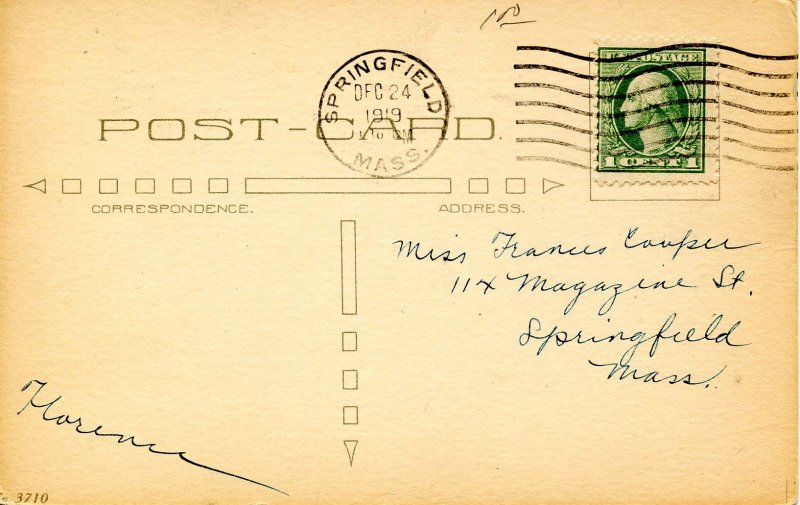 SPRINGFIELD
DEC 24
1919
MASS.
U.S. POSTAGE
1 CENT 1
POST-CARD.
CORRESPONDENCE.
ADDRESS.
Miss Frances Cooper
114 Magazine St.
Springfield
Mass.
Florence
3710